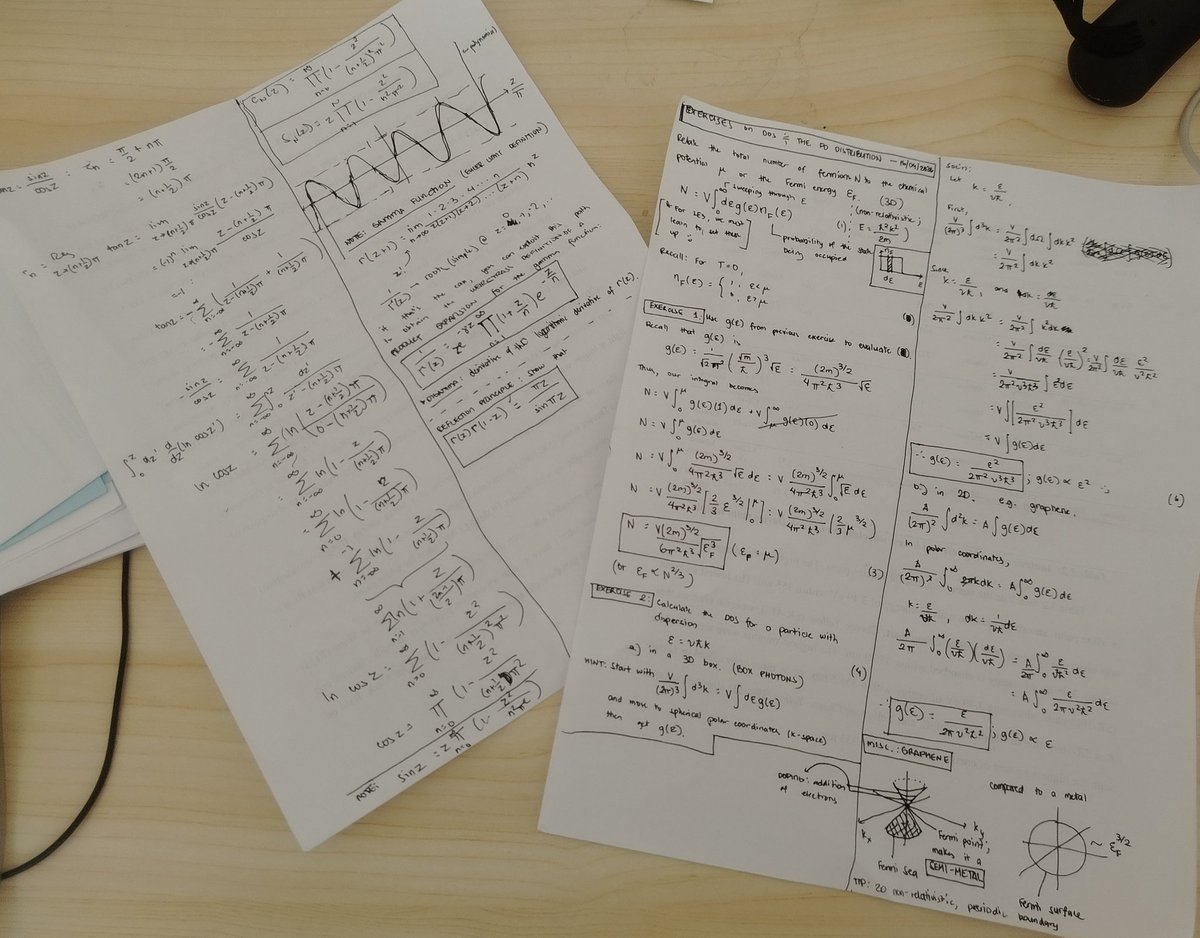 C_N(z) = ∏_{n=0}^{N} (1 - z²/((n+½)²π²))
S_N(z) = z ∏_{n=1}^{N} (1 - z²/(n²π²))
polynomial
z/π
tan z = sin z / cos z : z_n = π/2 + nπ
= (2n+1) π/2
= (n+½)π
r_n = Res_{z→(n+½)π} tan z = lim_{z→(n+½)π} sin z / cos z (z-(n+½)π)
= (-1)^n lim_{z→(n+½)π} (z-(n+½)π) / cos z
= -1
tan z = -∑_{n=-∞}^{∞} 1/(z-(n+½)π)
-sin z / cos z = ∑_{n=-∞}^{∞} 1/(z-(n+½)π)
∫_0^z dz' d/dz' (ln cos z') = ∑_{n=-∞}^{∞} ∫_0^z dz' / (z'-(n+½)π)
ln cos z = ∑_{n=-∞}^{∞} ln((z-(n+½)π) / (0-(n+½)π))
= ∑_{n=-∞}^{∞} ln(1 - z/((n+½)π))
= ∑_{n=0}^{∞} ln(1 - z/((n+½)π))
+ ∑_{n=-∞}^{-1} ln(1 - z/((n+½)π))
ln cos z = ∑_{n=0}^{∞} (1 - z²/((n+½)²π²))
cos z = ∏_{n=0}^{∞} (1 - z²/((n+½)²π²))
NOTE: sin z = z ∏_{n=0}^{∞} (1 - z²/(n²π²))
NOTE: GAMMA FUNCTION (EULER LIMIT DEFINITION)
Γ(z+1) = lim_{n→∞} 1·2·3·4·...·n / (z(z+1)(z+2)...(z+n)) n^z
z!
1/Γ(z) → roots (simple) @ z = 0, -1, -2, ...
if that's the case, you can exploit this
to obtain the WEIERSTRASS DEFINITION as a
PRODUCT EXPANSION for the gamma function.
1/Γ(z) = z e^{γz} ∏ (1+z/n) e^{-z/n}
DIGAMMA: derivative of the logarithmic derivative of Γ(z).
REFLECTION PRINCIPLE: Show that
Γ(z)Γ(1-z) = πz / sin πz
EXERCISES on DOS & THE FD DISTRIBUTION
Relate the total number of fermions N to the chemical
potential μ or the Fermi energy E_F. (3D)
sweeping through E
(non-relativistic;
N = V∫_0^∞ dε g(ε) n_F(ε) (1)
E = ħ²k²/2m)
[* For LFS, we must
learn to set these
up
probability of the state
being occupied
n_F
dE
Recall: For T=0,
n_F(ε) = { 1, ε<μ
0, ε>μ
EXERCISE 1: Use g(ε) from previous exercise to evaluate
Recall that g(ε) is
g(ε) = 1/(√2π²) (√m/ħ)³ √ε = (2m)^{3/2}/(4π²ħ³) √ε
Thus, our integral becomes
N = V∫_0^μ g(ε)(1)dε + V∫_μ^∞ g(ε)(0)dε
N = V∫_0^μ g(ε)dε
N = V∫_0^μ (2m)^{3/2}/(4π²ħ³) √ε dε = V (2m)^{3/2}/(4π²ħ³) ∫_0^μ √ε dε
N = V (2m)^{3/2}/(4π²ħ³) [2/3 ε^{3/2}|_0^μ] = V (2m)^{3/2}/(4π²ħ³) (2/3 μ^{3/2})
N = V(2m)^{3/2}/(6π²ħ³) √(ε_F³) (ε_F = μ)
(or ε_F ∝ N^{2/3}) (3)
EXERCISE 2: Calculate the DOS for a particle with
dispersion
ε = vħk
a) in a 3D box. (BOX PHOTONS) (4)
HINT: Start with V/(2π)³ ∫d³k = V∫dε g(ε)
and move to spherical polar coordinates (k-space)
then get g(ε).
SOL'N:
Let k = ε/vħ.
First,
V/(2π)³ ∫d³k = V/2π² ∫dΩ ∫dk k²
= V/2π² ∫dk k²
Since
k = ε/vħ, and dk = dε/vħ
V/2π² ∫dk k² = V/2π² ∫k²dk
= V/2π² ∫dε/vħ (ε/vħ)² = V/2π² ∫dε/vħ ε²/v²ħ²
= V/(2π²v³ħ³) ∫ε²dε
= V∫[ε²/(2π²v³ħ³)]dε
= V∫g(ε)dε
∴ g(ε) = ε²/(2π²v³ħ³); g(ε) ∝ ε² (6)
b) in 2D. e.g. graphene.
A/(2π)² ∫d²k = A∫g(ε)dε
In polar coordinates,
A/(2π)² ∫_0^∞ 2πkdk = A∫_0^∞ g(ε)dε
k = ε/vħ, dk = 1/vħ dε
A/2π ∫_0^∞ (ε/vħ)(dε/vħ) = A/2π ∫_0^∞ ε/v²ħ² dε
= A∫_0^∞ ε/(2πv²ħ²) dε
∴ g(ε) = ε/(2πv²ħ²); g(ε) ∝ ε
MISC.: GRAPHENE
DOPING: addition
of electrons
k_x
k_y
Fermi point;
makes it a
SEMI-METAL
Fermi sea
compared to a metal
~ ε_F^{3/2}
Fermi surface
TIP: 2D non-relativistic, periodic boundary